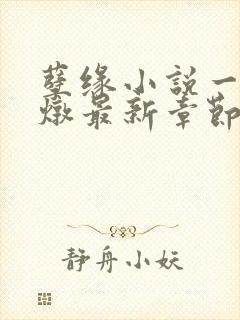 孽缘小説一
燉最新章節
静舟小妖